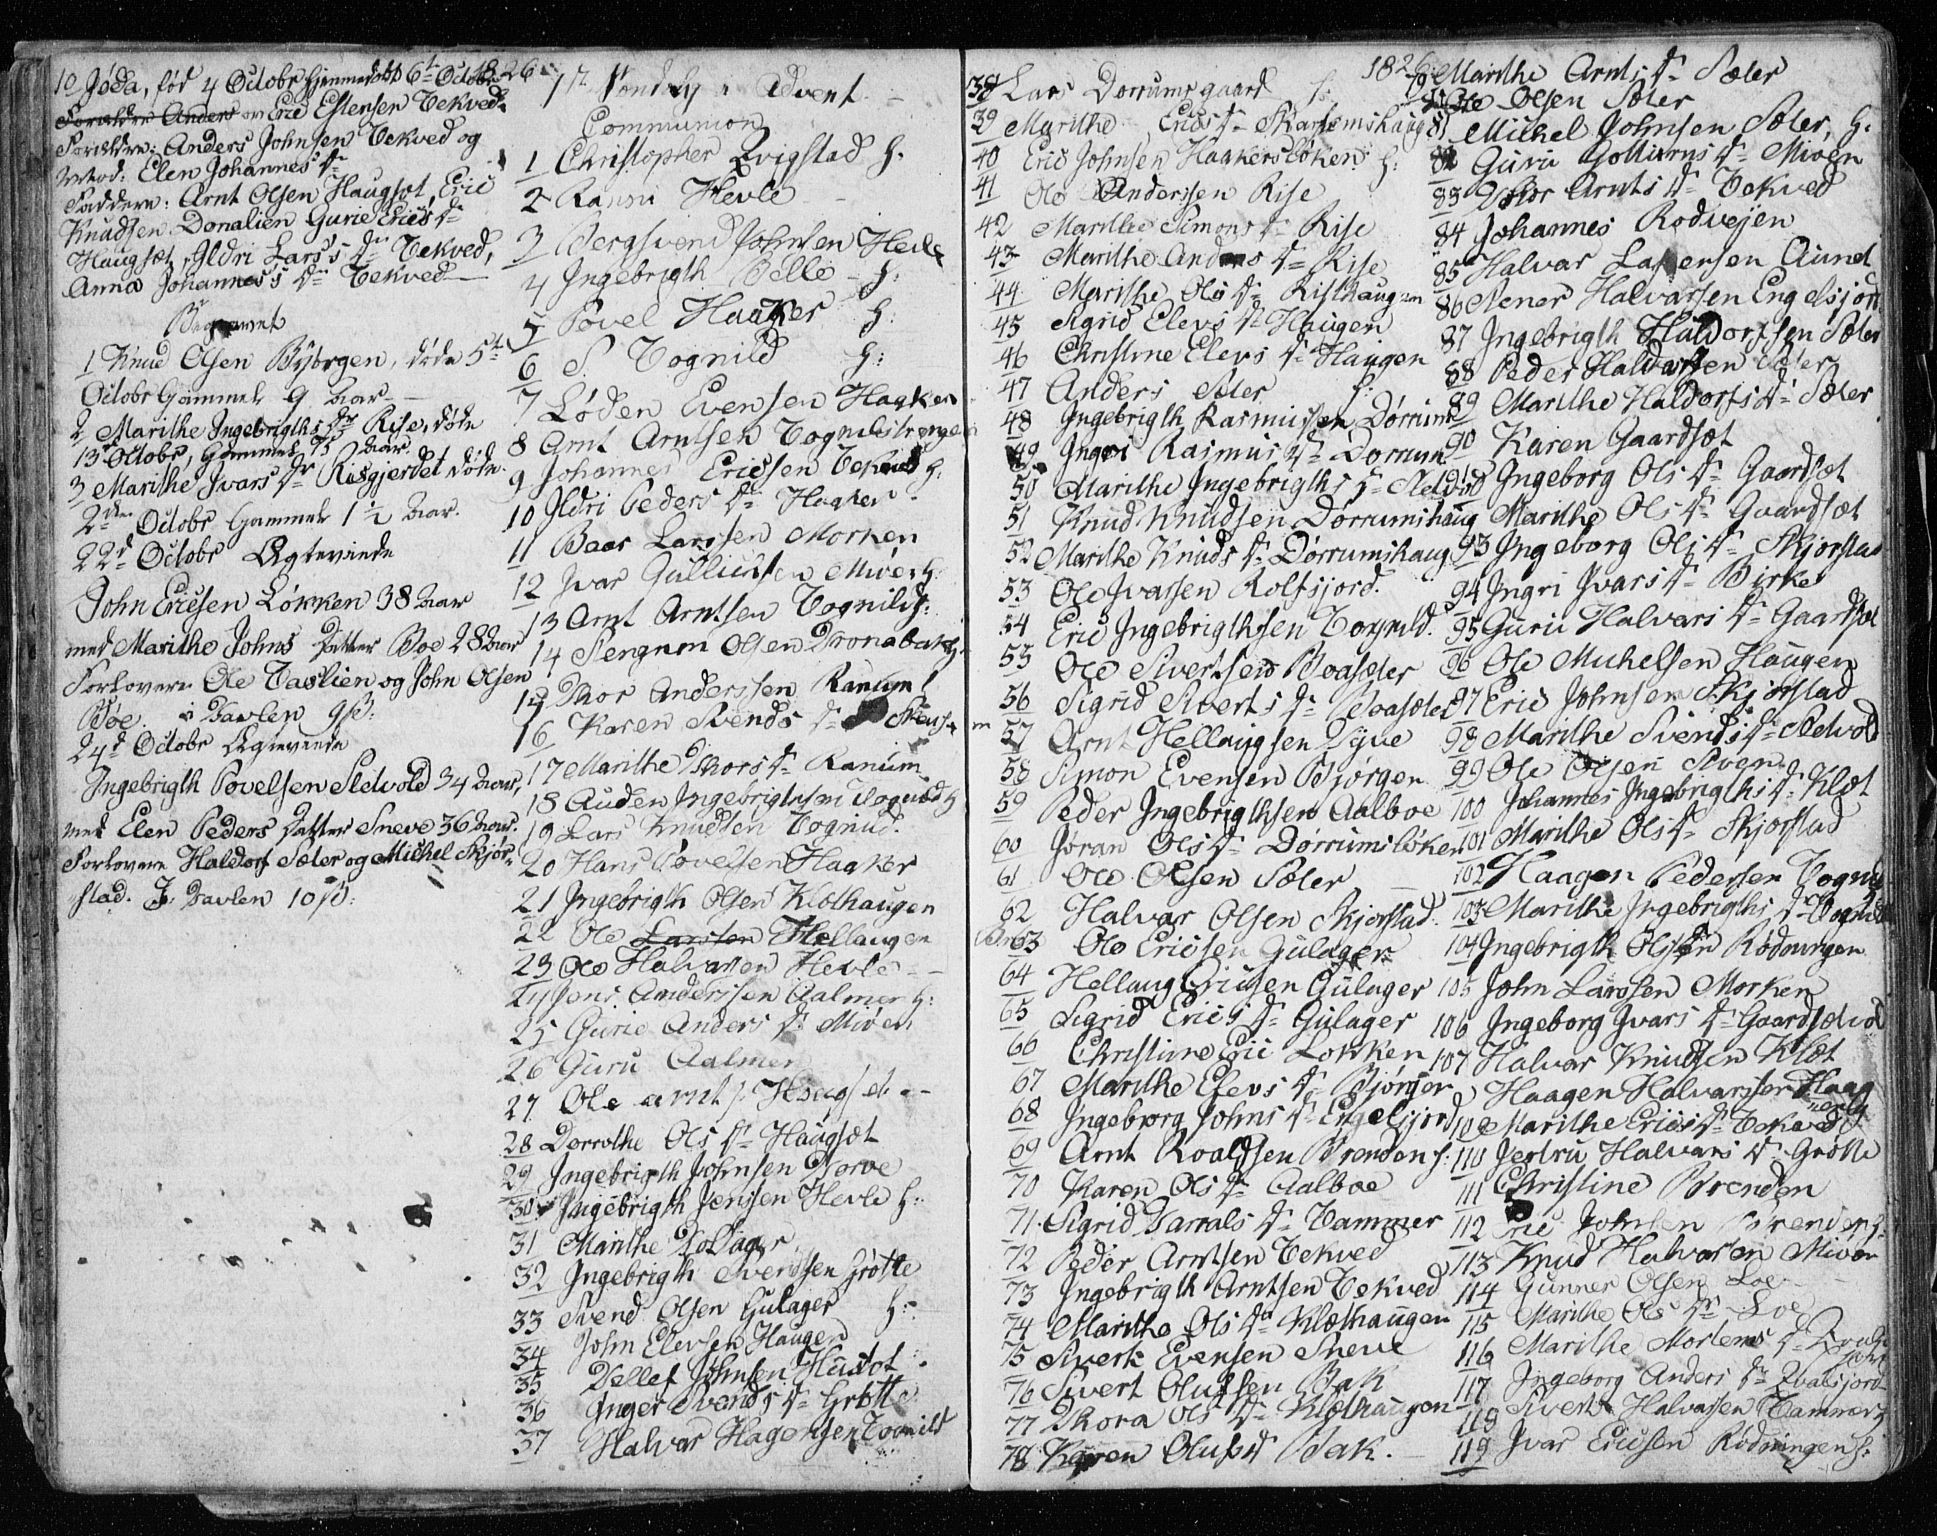 1826
10 Joda, fød 4 Octobr hjemmedøbt 6t Octobr
Forældre Anders ver Eric Estensen Tekved.
Forældre: Anders Johnsen Tekved og
Elen Johannes Dr
Faddere: Arnt Olsen Haugsæt, Eric
Knudsen Donalien Gurie Erics Dr
Haugsæt, Ildri Lars's Dr Tekved,
Anna Johannes's Dr Tekved
Begravet
1 Knud Olsen Bjørgen, døde 5t
Octobr Gammel 9 Aar
2 Marithe Ingebrigths Dr Rise, døde
13 Octobr, Gammel 75 Aar.
3 Marithe Ivars Dr Risgjerdet døde
2den Octobr Gammel 1 1/2 Aar.
22d Octobr Ægteviede
John Ericsen Løkken 38 Aar
med Marithe Johns Datter Boe 28 Aar
Forlovere Ole Tavlien og John Olsen
Boe. i Tavlen
24d Octobr Ægteviede
Ingebrigth Povelsen Sletvold 34 Aar,
med Elen Peders Datter Sneve 36 Aar.
Forlovere Haldor Sæter og Michel Skjør-
stad. I Tavlen
1te Søndag i Advent
Communion
1 Christopher Qvigstad h.
2 Ranou Hevle
3 Bergsvend Johnsen Hevle
4 Ingebrigth Pelle h:
5 Povel Haaker h:
6 S. Tognild h:
7 Løden Evensen Haaker
8 Arnt Arntsen Tognild
9 Johannes Ericsen Tekved h:
10 Ildri Peders Dr Haaker
11 Baar Larssen Morken
12 Ivar Gulliksen Miøen h:
13 Arnt Arntsen Tognild h:
14 Olsen
15 Thor Anderssen Ranum
16 Karen Svends Dr
17 Marithe Thors Dr Ranum
18 Auden Ingebrigthsen Tognild h
19 Lars Knudsen Tognild.
20 Hans Povelsen Haaker
21 Ingebrigth Olsen Klæthaugen
22 Ole Larssen Hellaugen
23 Ole Halvarsen Hevle
24 Jens Anderssen Aalmen h:
25 Gurie Anders Dr Miøen
26 Guru Aalmen
27 Ole Arnts Haugsæt
28 Dorrothe Ols Dr Haugsæt
29 Ingebrigth Johnsen Horve
30 Ingebrigth Jenssen Hevle h:
31 Marithe
32 Ingebrigth Svendsen Grøtte
33 Svend Olsen Gulager h:
34 John Elevsen Haugen
35 Dellef Johnsen
36 Inger Svends Dr Grøtte
37 Halvar Hagensen Tognild
1826
38 Lars Dørrumsgaard h:
39 Marithe Erics Dr Skarsemshaug
40 Eric Johnsen Haakersløken h:
41 Ole Anderssen Rise
42 Marithe Simons Dr Rise
43 Marithe Anders Dr Rise
44 Marithe Ols Dr Risthaugen
45 Sigrid Elevs Dr Haugen
46 Christine Elevs Dr Haugen
47 Anders Sæter h:
48 Ingebrigth Rasmussen Dørrum
49 Ingri Rasmus Dr Dorrum
50 Marithe Ingebrigths Dr Sletvold
51 Knud Knudsen Dørrumshaug
52 Marithe Knuds Dr Dørrumshaug
53 Ole Ivarsen Rolfsjord.
54 Eric Ingebrigthsen Tognild.
55 Ole Sivertsen Boasæter
56 Sigrid Siverts Dr Boasæter
57 Arnt Hellaugsen Vyve
58 Simon Evensen Bjørgen
59 Peder Ingebrigthsen Aalboe
60 Jøran Ols Dr Dørrumsløken
61 Ole Olsen Sæter
62 Halvar Olsen Skjørstad.
63 Ole Ericsen Gulager
64 Hellaug Ericsen Gulager
65 Sigrid Erics Dr Gulager
66 Christine Eric Løkken
67 Marithe Elevs Dr Bjørgen
68 Ingeborg Johns Dr Engelsjord
69 Arnt Roaldsen Brenden h.
70 Karen Ols Dr Aalboe
71 Sigrid Harrals Dr Tammer
72 Peder Arntsen Tekved
73 Ingebrigth Arntsen Tekved
74 Marithe Ols Dr Klæthaugen
75 Sivert Evensen Sneve
76 Sivert Olufsen Bak
77 Thora Ols Dr Klæthaugen
78 Karen Olufs Dr Bak.
79 Marithe Arnts Dr Sæter
80 Ole Olsen Sæter
81 Michel Johnsen Sæter, h:
82 Guru Gottierns Dr Miøen
83 Arnts Dr Tekved
84 Johannes Rodvejen
85 Halvar Larsensen Aune
86 Stener Halvarsen Engelsjord
87 Ingebrigth Haldorssen Sæter
88 Peder Haldorsen Sæter
89 Marithe Haldors Dr Sæter
90 Karen Gaardsæt
91 Ingeborg Ols Dr Gaardsæt
92 Marithe Ols Dr Gaardsæt
93 Ingeborg Ols Dr Skjørstad
94 Ingri Ivars Dr Birke
95 Guru Halvars Dr Gaardsæt
96 Ole Michelsen Haugen
97 Eric Johnsen Skjørstad
98 Marithe Svends Dr Sletvold
99 Ole Olsen Steen
100 Johannes Ingebrigths Dr Klæt
101 Marithe Ols Dr Skjørstad
102 Haagen Pedersen Tognild
103 Marithe Ingebrigths Dr Tognild
104 Ingebrigth Olsen Rødningen
105 John Larssen Morken
106 Ingeborg Ivars Dr Gaardsætvold
107 Halvar Knudsen Klæt
Haagen Halvarssen Haag
109 Marithe Erics Dr Tekved
110 Jertru Halvars Dr Grøtte
111 Christine Brenden
112 Eric Johnsen Brenden h.
113 Knud Halvarsen Miøen
114 Gunner Olsen Loe
115 Marithe Ols Dr Loe
116 Marithe Mortens Dr
117 Ingeborg Anders Dr Kvalsjord
118 Sivert Halvarsen Tammer h
119 Ivar Ericsen Rødningen h: